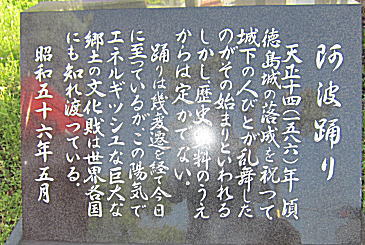 阿波踊り
天正十四(一五八六)年頃
徳島城の落成を祝って
城下の人びとが乱舞した
のがその始まりといわれる
しかし歴史資料のうえ
からは定かでない。
踊りは幾変遷を経て今日
に至っているがこの陽気で
エネルギッシュな巨大な
郷土の文化財は世界各国
にも知れ渡っている。
昭和五十六年五月